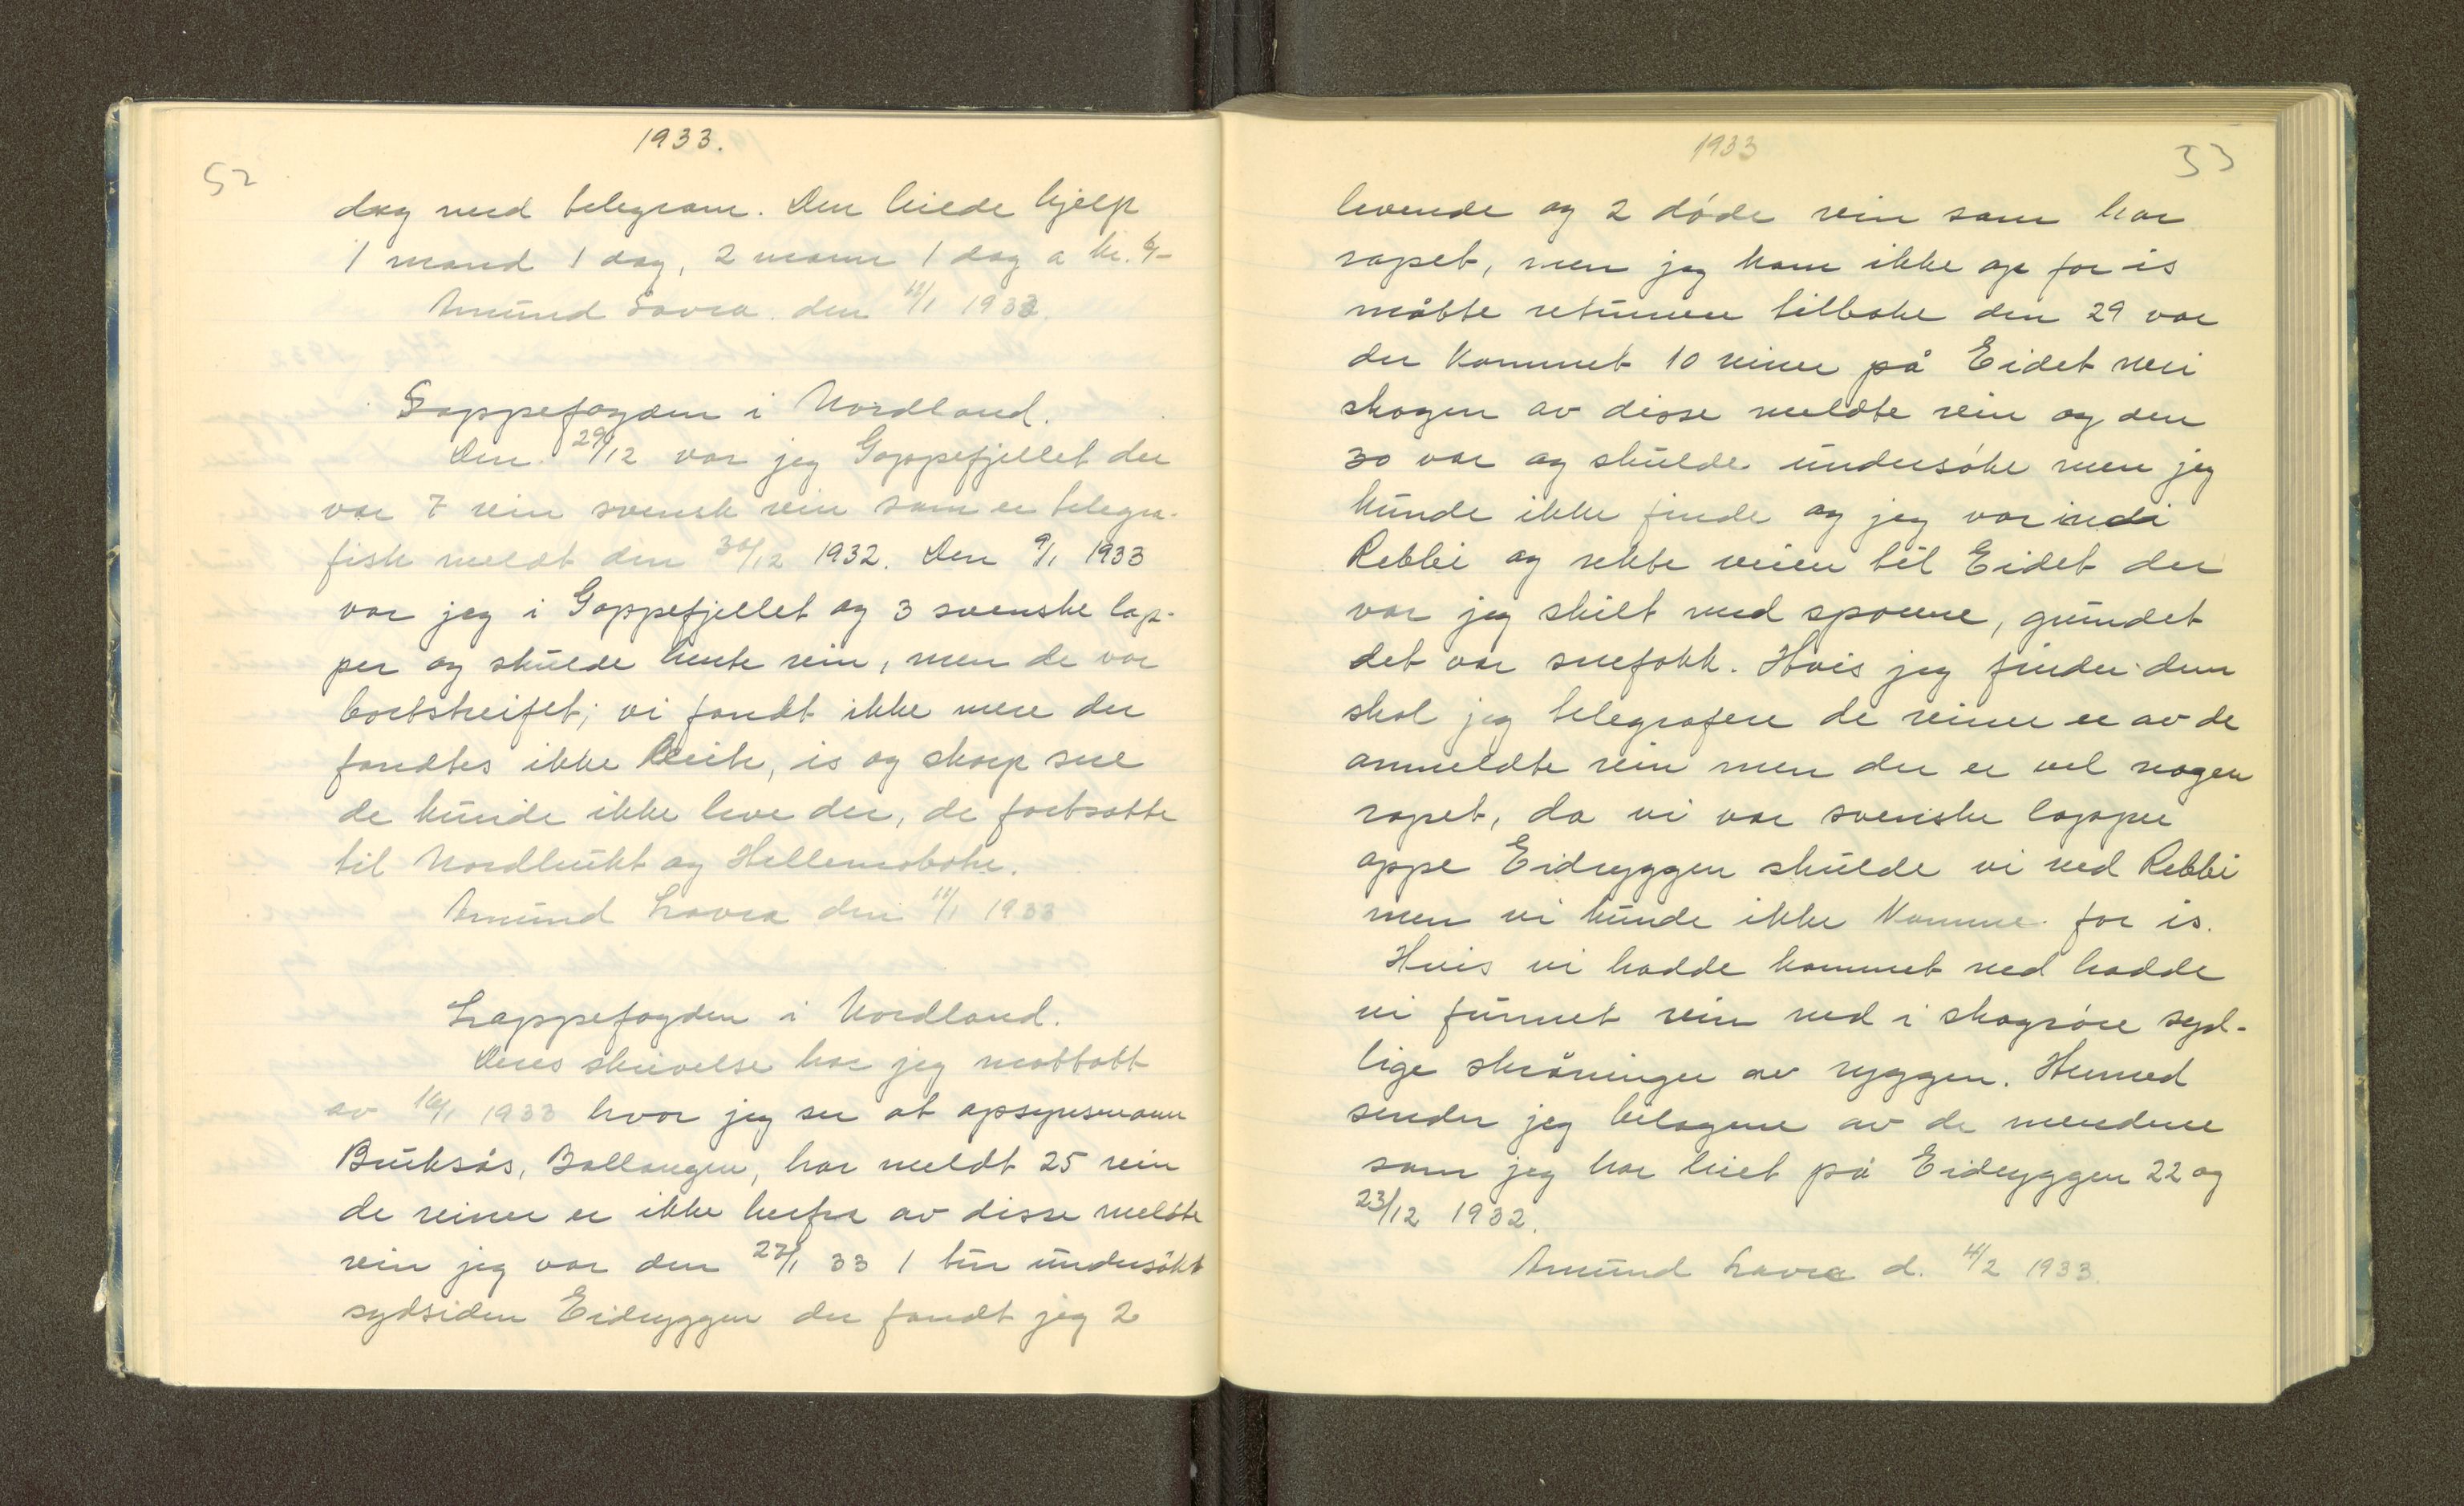 1933.
52
dag med telegram. Den leiede hjelp
1 mand 1 dag, 2 mann 1 dag a kr. 6/-
Amund Lavra. den 11/1 1933.
Lappefogden i Nordland.
Den 29/12 var jeg Goppefjellet der
var 7 rein svensk rein som er telegra-
fisk meldt den 30/12 1932. Den 9/1 1933
var jeg i Goppefjellet og 3 svenske lap-
per og skulde hente rein, men de var
bortstreifet; vi fandt ikke mere der
fandtes ikke Beite, is og skarp sne
de kunde ikke leve der, de fortsatte
til Nordbukt og Hellemobotn.
Amund Lavra den 11/1 1933
Lappefogden i Nordland.
Deres skrivelse har jeg mottatt
av 16/1 1933 hvor jeg ser at opsynsmann
Buksås, Ballangen, har meldt 25 rein
de reiner er ikke herfra av disse meldte
rein jeg var den 27/1 33 1 tur undersøkt
sydsiden Eidryggen der fandt jeg 2
1933
53
levende og 2 døde rein som har
rapet, men jeg kom ikke op for is
måtte returnere tilbake den 29 var
der kommet 10 reiner på Eidet neri
skogen av disse meldte rein og den
30 var og skulde undersøke men jeg
kunde ikke finde og jeg var indi
Rebbi og rekte veien til Eidet der
var jeg skilt med sporene, grundet
det var snefokk. Hvis jeg finder dem
skal jeg telegrafere de reiner er av de
anmeldte rein men der er vel nogen
rapet, da vi var svenske lapper
oppe Eidryggen skulde vi ned Rebbi
men vi kunde ikke komme for is.
Hvis vi hadde kommet ned hadde
vi funnet rein ned i skograre syd-
lige skråninger av ryggen. Hermed
sender jeg bilagene av de mendene
som jeg har leiet på Eidryggen 22 og
23/12 1932.
Amund Lavra d. 4/2 1933.